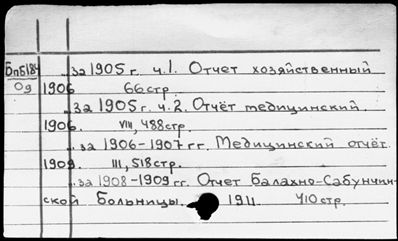 Бп5184 ...за 1905 г. ч.1. Отчет хозяйственный
Од 1906 66 стр.
...за 1905 г. ч.2. Отчёт медицинский.
1906. VIII, 488 стр.
...за 1906-1907 гг. Медицинский отчёт.
1909. III, 518 стр.
...за 1908-1909 гг. Отчет Балахно-Сабунчин-
ской Больницы. 1911. 410 стр.